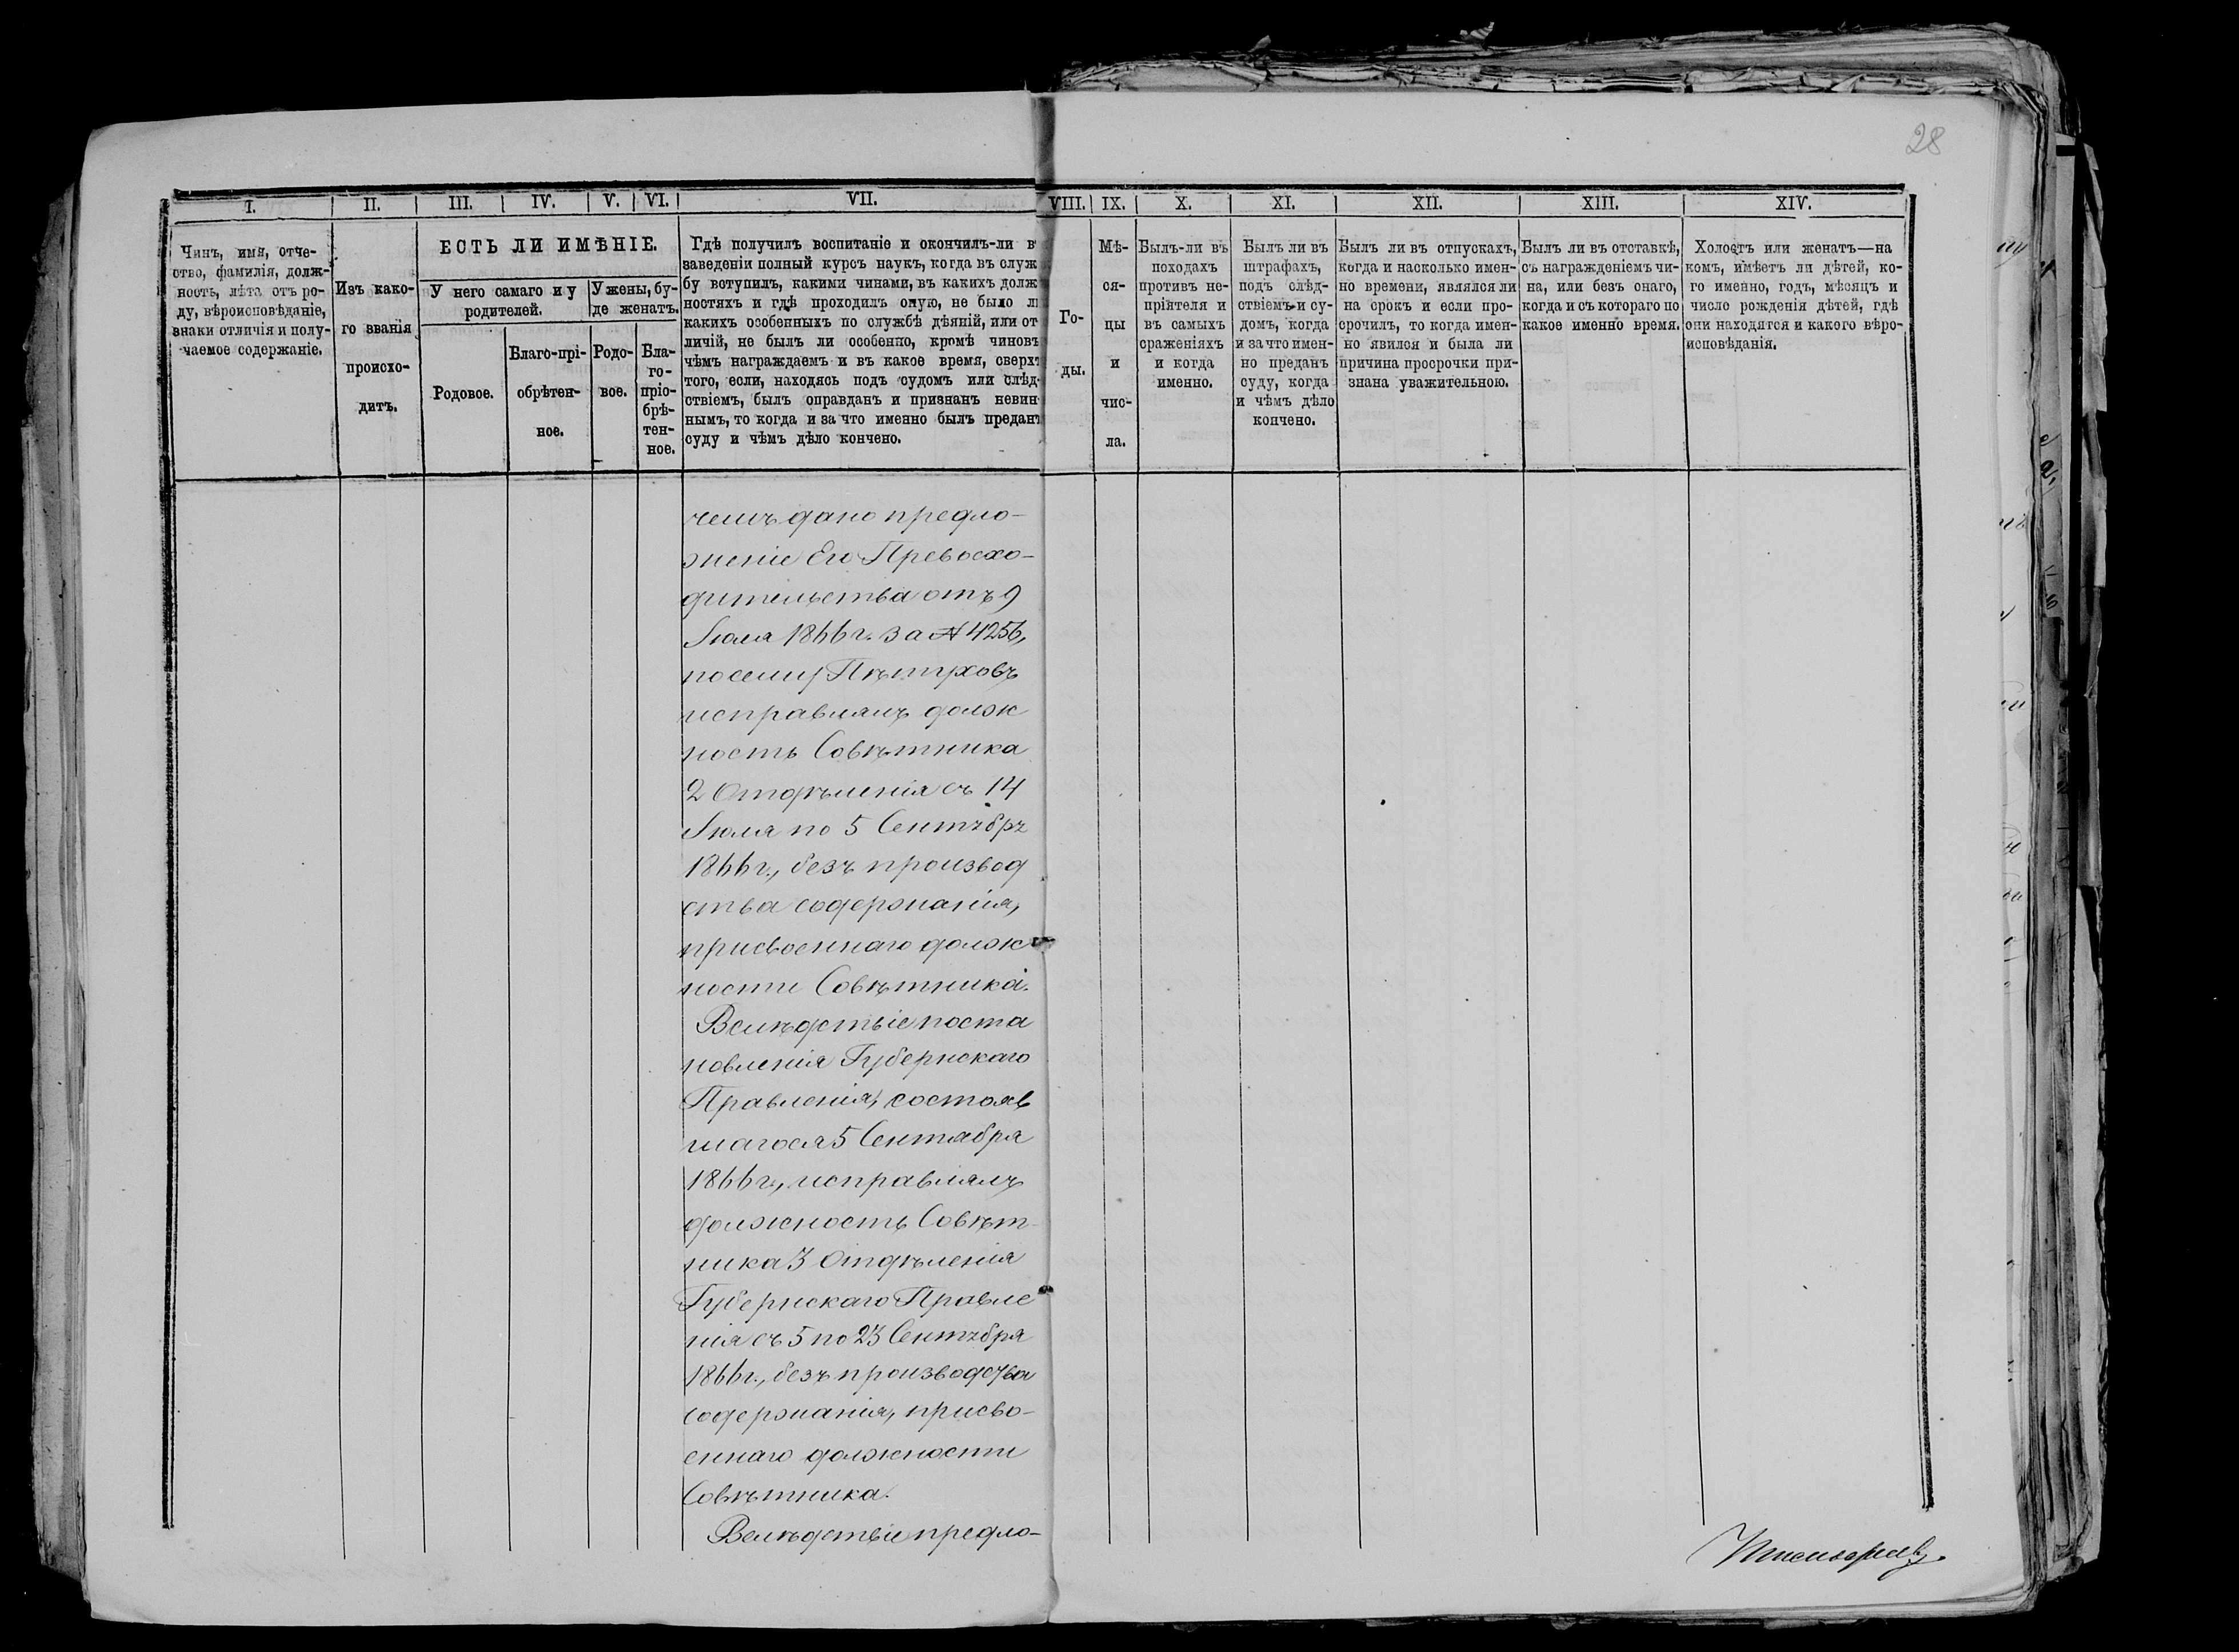 28
I. II. III. IV. V. VI. VII. VIII. IX. X. XI. XII. XIII. XIV.
Чинъ, имя, отче-
ство, фамилія, долж-
ность, лѣта отъ ро-
ду, вѣроисповѣданіе,
знаки отличія и полу-
чаемое содержаніе.
Изъ како-
го званія
происхо-
дитъ.
ЕСТЬ ЛИ ИМѢНІЕ.
У него самаго и у
родителей.
У жены, бу-
де женатъ.
Родовое.
Благо-прі-
обрѣтен-
ное.
Родо-
вое.
Бла-
го-
пріо-
брѣ-
тен-
ное.
Гдѣ получилъ воспитаніе и окончилъ-ли в
заведеніи полный курсъ наукъ, когда въ служ
бу вступилъ, какими чинами, въ какихъ долж
ностяхъ и гдѣ проходилъ оную, не было л
какихъ особенныхъ по службѣ дѣяній, или от
личій, не былъ ли особенно, кромѣ чиновъ
чѣмъ награждаемъ и въ какое время, сверхъ
того, если, находясь подъ судомъ или слѣд-
ствіемъ, былъ оправданъ и признанъ невин-
нымъ, то когда и за что именно былъ преданъ
суду и чѣмъ дѣло кончено.
Го-
ды.
Мѣ-
ся-
цы
и
чис-
ла.
Былъ-ли въ
походахъ
противъ не-
пріятеля и
въ самыхъ
сраженіяхъ
и когда
именно.
Былъ ли въ
штрафахъ,
подъ слѣд-
ствіемъ и су-
домъ, когда
и за что имен-
но преданъ
суду, когда
и чѣмъ дѣло
кончено.
Былъ ли въ отпускахъ,
когда и насколько имен-
но времени, являлся ли
на срокъ и если про-
срочилъ, то когда имен-
но явился и была ли
причина просрочки при-
знана уважительною.
Былъ ли въ отставкѣ,
съ награжденіемъ чи-
на, или безъ онаго,
когда и съ котораго по
какое именно время.
Холостъ или женатъ—на
комъ, имѣетъ ли дѣтей, ко-
го именно, годъ, мѣсяцъ и
число рожденія дѣтей, гдѣ
они находятся и какого вѣро-
исповѣданія.
чемъ дано предло-
женіе Его Превосхо-
дительства отъ 9
Іюля 1866 г. за № 4256,
посему Пѣтуховъ
исправлялъ долж
ность Совѣтника
2 Отдѣленія съ 14
Іюля по 5 Сентября
1866 г., безъ производ
ства содержанія,
присвоеннаго долж
ности Совѣтника.
Вслѣдствіе поста
новленія Губернскаго
Правленія, состояв
шагося 5 Сентября
1866 г., исправлялъ
должность Совѣт-
ника 3 Отдѣленія
Губернскаго Правле
нія съ 5 по 23 Сентября
1866 г., безъ производства
содержанія, присво-
еннаго должности
Совѣтника.
Вслѣдствіе предло-